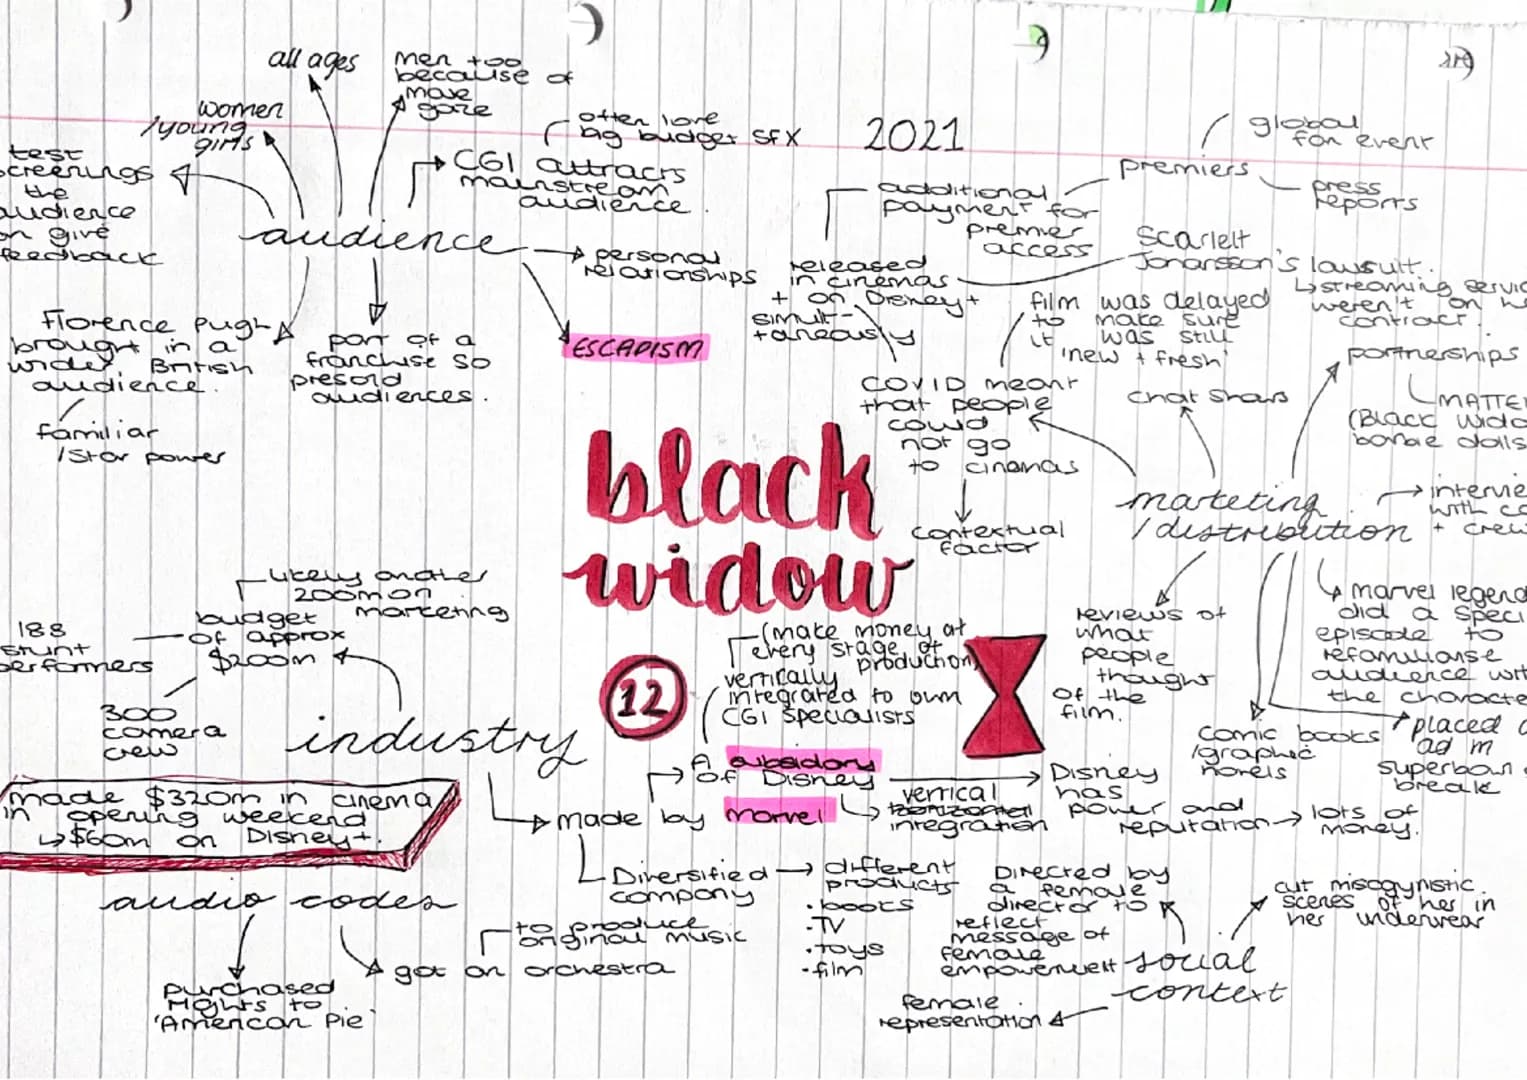 all ages
men too
because of
male
gaze
women
/young
girls
test
screenings
the
audience
give
feedback
often love
big budget SFX
CGI attracts
mainstream
audience.
audience
personal
relationships
ESCAPISM
Florence Pugh
brought in a
wider British
audience.
familiar
/star power
part of a
franchise so
presold
audiences.
2021
global
fan event
premiers
press
reports
additional
payment for
premier
access
released
in cinemas
+ on Disney+
simul-
taneously
Scarlett
Johansson's lawsuit.
↳streaming
weren't on
contract.
film was delayed
to make sure
it was still
'new + fresh'
COVID meant
that people
could
not go
to cinemas
contextual
factor
chat shows
partnerships
(Black
barbie dolls
marketing
/distribution
with
+
reviews of
what
people
thought
of the
film.
marvel
did a
episode to
refamiliarise
audience
the
comic books
/graphic
novels
placed
ad in
superbowl
break
black
widow
12
likely another
200m on
marketing
budget
of approx
$200m
188
stunt
performers
300
camera
crew
industry
(make money at
every stage of
production)
vertically
integrated to own
CGI specialists
A subsidary
of Disney
made by marvel
vertical
horizontal
integration
Disney
has
power and
reputation → lots of
money.
Diversified
company
different
products
·books
·TV
·toys
·film
made $320m in cinema
in opening weekend
↳$60m on Disney+.
audio codes
purchased
rights to
'American Pie'
to produce
original music
got an orchestra
social
context
Directed by
a female
director to
reflect
message of
female
empowerment
cut misogynistic
scenes of her in
her underwear
female
representation